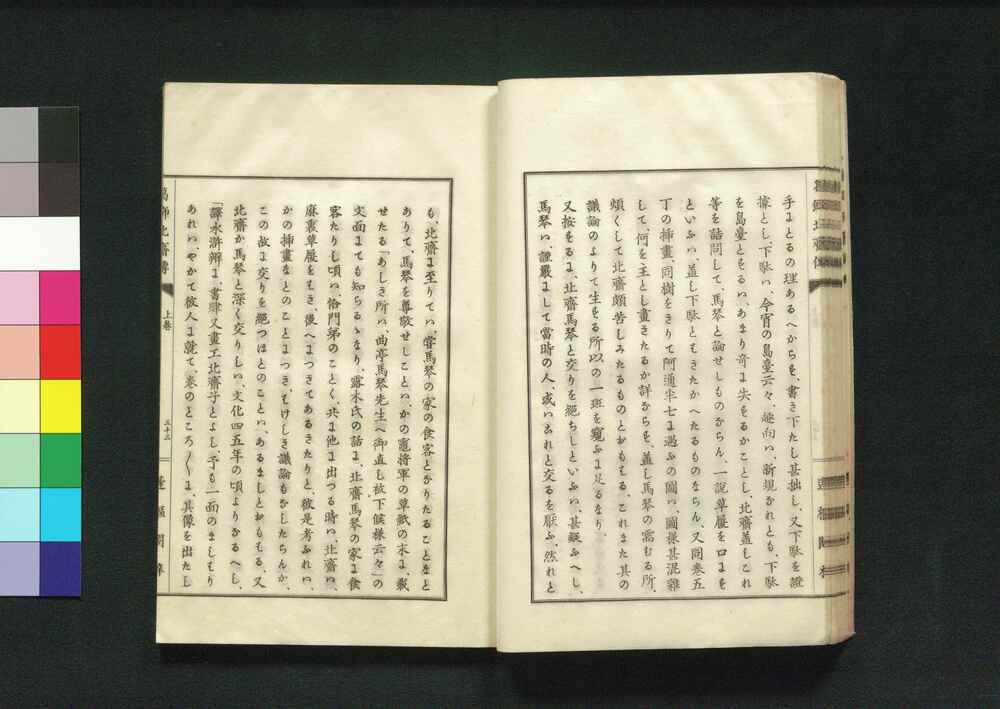 手よとるの理あるへからを、書き下たし甚拙し、又下駄を證
據とし、下駄ハ、今宵の島臺云々、趣向ハ、新規かれとも、下駄
を島臺とをるハ、あまり奇よ失をるかことし、北齋蓋しこれ
等を詰問して、馬琴と論せしものならん、一説草履を口よを
といふハ、蓋し下駄ともきたかへたるものならん、又同巻五
丁の挿畫、同樹をきりて阿通半七よ過ふの圖ハ、圖様甚混雜
して、何を主とし畫きたるか詳ならを、蓋し馬琴の需むる所、
煩くして北齋頗苦しみたるものとおもる、これまた其の
議論のよりて生をる所以の一班を窺ふよ足るなり、
又按をるよ、北齋馬琴と交りを絶ちしといふハ、甚疑ふへし、
馬琴ハ、謹嚴よして當時の人、或ハ之れと交るを厭ふ、然れと
も、北齋よ至りてハ、嘗馬琴の家の食客とかりたることなと
ありて、馬琴を尊敬せしことハ、かの竈將軍の草紙の末よ、載
せたる「あしき所ハ、曲亭馬琴先生へ御直し被下候様云々」の
文面よても知らるゝなり、露木氏の話よ、北齋馬琴の家よ食
客たりし頃ハ、恰門弟のことく、共よ他よ出つる時ハ、北齋ハ、
麻裏草履をもき、後へよつきてあるきたりと、彼是考ふれハ、
かの挿畫なとのことよつき、もけしき議論もなしたらんか、
この故よ交りを絶つほとのことハ、あるましとおももる、又
北齋か馬琴と深く交りしハ、文化四五年の頃よりなるへし、
「譯水滸辨よ、書肆又畫工北齋子とよし、予も一面のましもり
あれハ、やかて彼人よ就て、巻のところ〳〵よ、其像を出たし
葛飾北齋傳
上巻
三十三